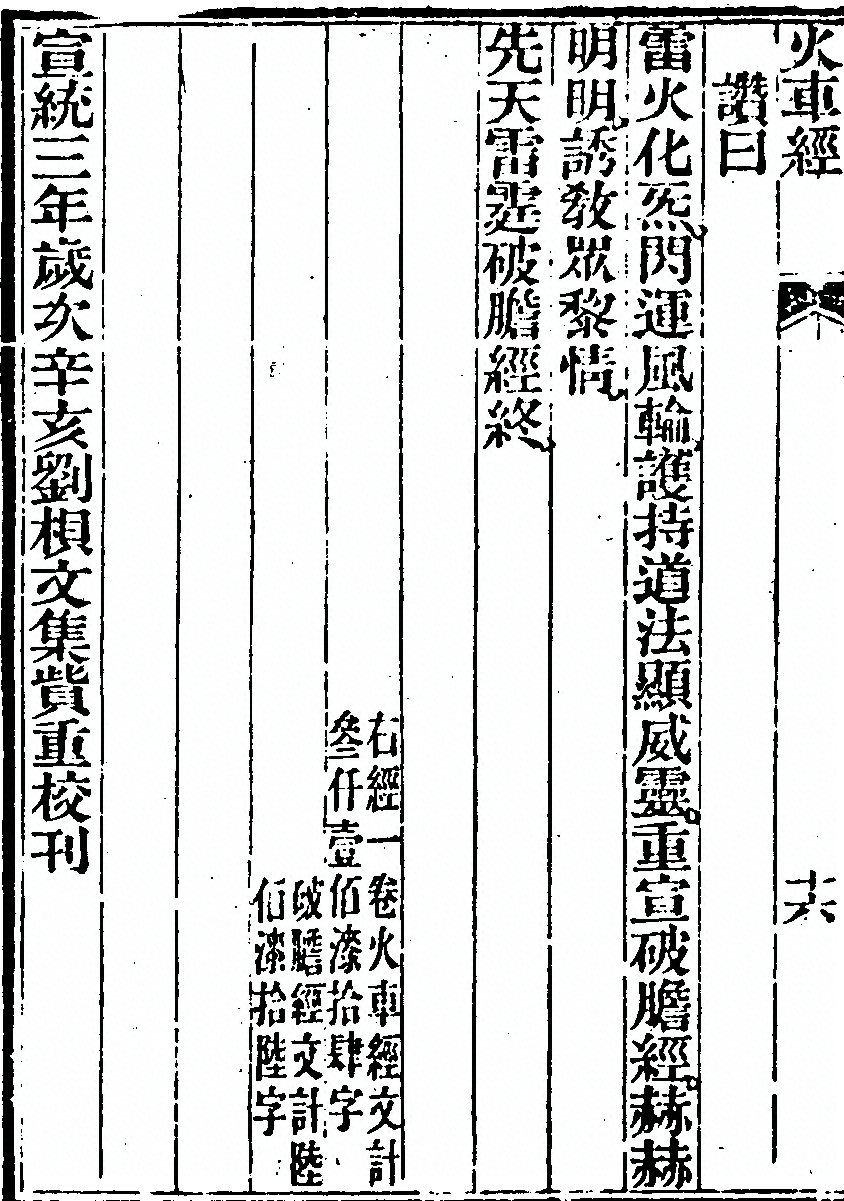 火車經
十六
讚曰
雷火化炁閃運風輪護持道法顯威靈重宣破膽經赫赫
明明誘教眾黎情
先天雷霆破膽經終
右經一卷火車經文計
叄仟壹佰漆拾肆字
破膽經文計陸
佰漆拾陸字
宣統三年歲次辛亥劉楨文集貲重校刊